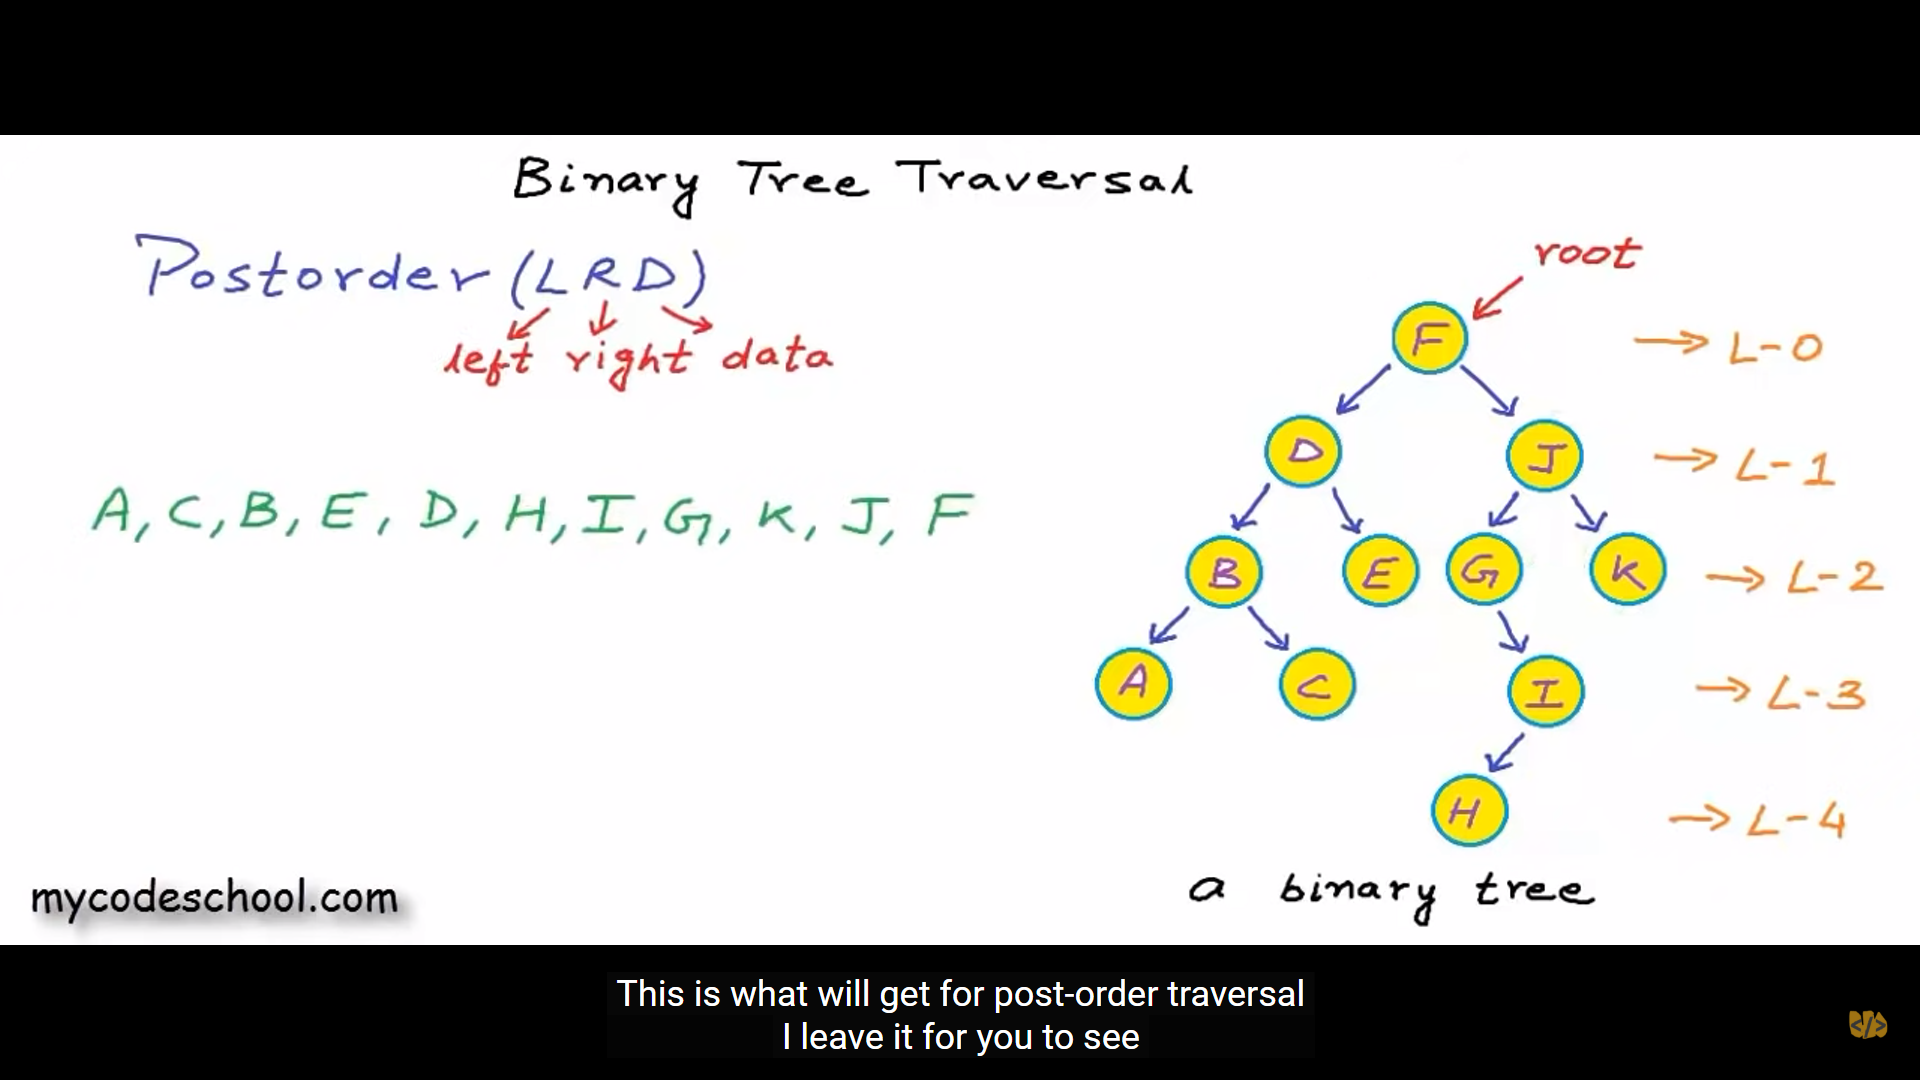 Binary Tree Traversal
Postorder (LRD)
left right data
A, C, B, E, D, H, I, G, K, J, F
root
F → L-0
D J → L-1
B E G K → L-2
A C I → L-3
H → L-4
a binary tree
mycodeschool.com
This is what will get for post-order traversal
I leave it for you to see